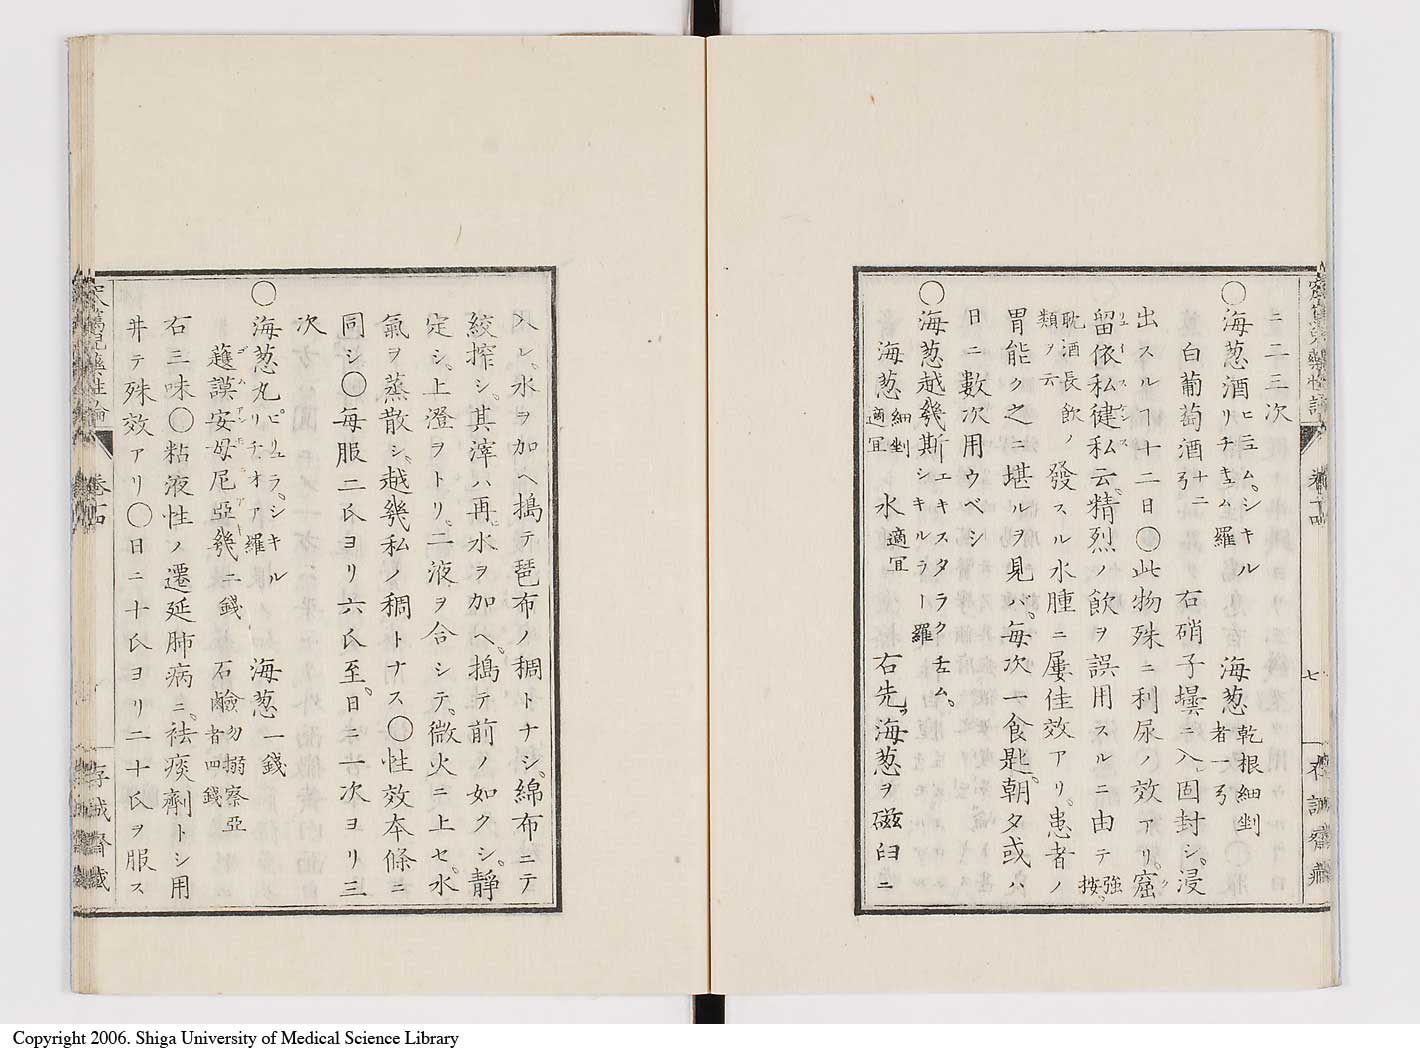 ニ二三次
〇海葱酒 ヒニュム、シキル リチキュム 羅 海葱 乾根細剉者一𠔃
白葡萄酒 十二 右硝子壜ニ入固封シ、浸
出スルヿ十二日〇此物殊ニ利尿ノ效アリ、窊
留依私徤私云、精烈ノ飲ヲ誤用スルニ由テ 強按、
耽酒長飲ノ類ヲ云 發スル水腫ニ屢佳效アリ、患者ノ
胃能ク之ニ堪ルヲ見バ、每次一食匙、朝夕或ハ
日ニ數次用ウベシ
〇海葱越幾斯 エキスタラクチュム、シキルラー 羅
海葱 細剉適宜 水 適宜 右先ヅ海葱ヲ磁臼ニ
入レ、水ヲ加ヘ搗テ琶布ノ稠トナシ、綿布ニテ
絞搾シ、其滓ハ再水ヲ加ヘ、搗テ前ノ如クシ、靜
定シ、上澄ヲトリ、二液ヲ合シテ、微火ニ上セ、水
氣ヲ蒸散シ、越幾私ノ稠トナス〇性效本條ニ
同シ〇每服二氏ヨリ六氏至、日ニ二次ヨリ三
次
〇海葱丸 ピリュラ、シキルリチオア 羅 海葱一錢
蘓謨安母尼亞幾二錢 石鹼 勿搦察亞者四錢
右三味〇粘液性ノ遷延肺病ニ、祛痰劑トシ用
井テ殊效アリ〇日ニ十氏ヨリ二十氏ヲ服ス
七
存誠齋藏